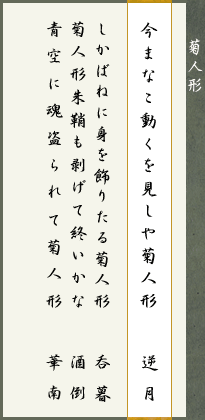 菊人形
今まなこ動くを見しや菊人形 逆月
しかばねに身を飾りたる菊人形 呑暮
菊人形朱鞘も剥げて終いかな 酒倒
青空に魂盗られて菊人形 華南